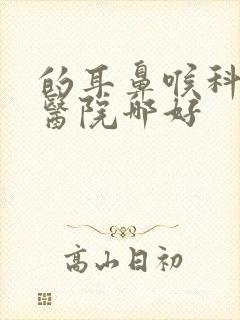 的耳鼻喉科
醫院哪好
高山日初